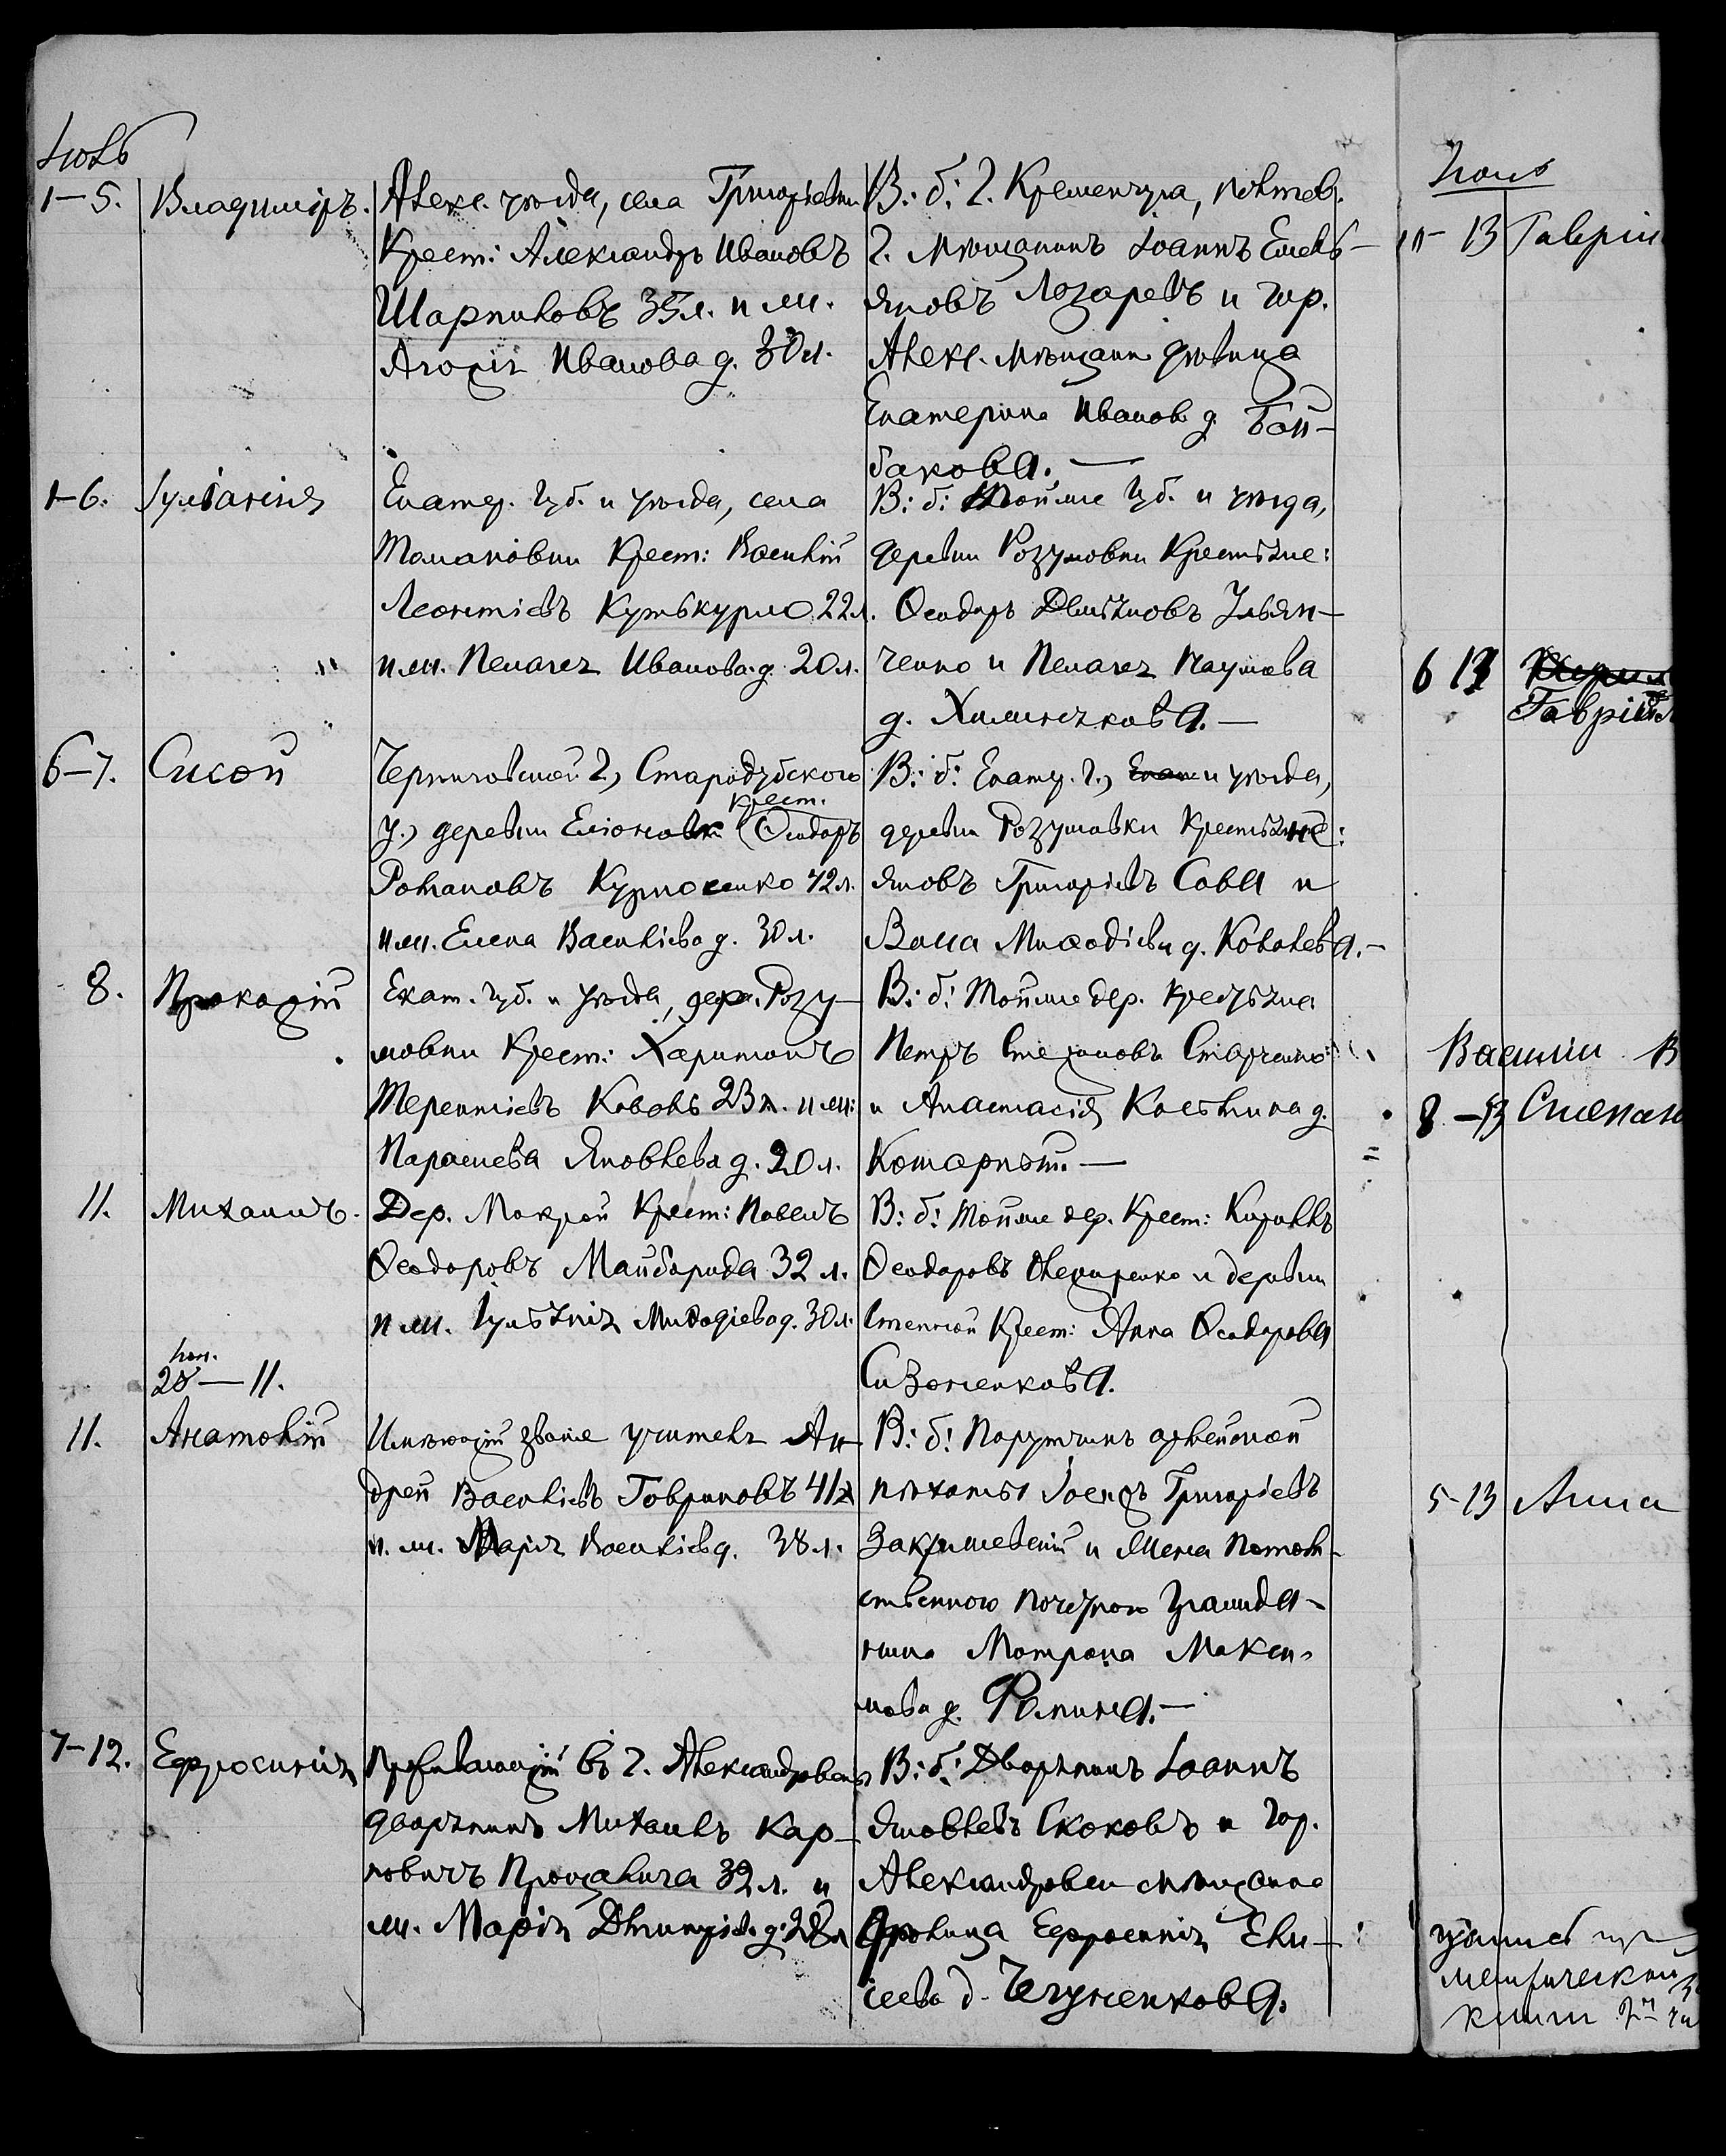 Іюль
1–5. Владиміръ. Алекс. уѣзда, села Григорьевки
Крест: Александръ Ивановъ
Шарпиковъ 35 л. и ж.
Агафія Иванова д. 30 л.
В: б: г. Кременчуга, Полтав.
г. мѣщанинъ Іоаннъ Емель-
яновъ Лазаревъ и гор.
Алекс. мѣщанка дѣвица
Екатерина Иванов. д. Бай-
бакова. —
1–6. Іуліанія
Екатер. губ. и уѣзда, села
Томаковки Крест: Василій
Леонтіевъ Кутькурло 22 л.
и ж. Пелагея Иванова д. 20 л.
В: б: Той же губ. и уѣзда,
деревни Розумовки Крестьяне:
Ѳеодоръ Демьяновъ Ульян-
ченко и Пелагея Наумова
д. Химичкова. —
6–7. Сисой
Черниговской г., Стародубскаго
крест.
у., деревни Еліоновки Ѳеодоръ
Романовъ Курносенко 42 л.
и ж. Елена Васильева д. 30 л.
В: б: Екатер. г., Екат и уѣзда,
деревни Розумовки Крестьяне:
Яковъ Григоріевъ Сова и
Васса Меѳодіева д. Ковалева. —
8. Аркадій
Екат. губ. и уѣзда, дер. Розу-
мовки Крест: Харитонъ
Терентіевъ Коваль 23 л. и ж:
Параскева Яковлева д. 20 л.
В: б: Той же дер. Крестьяне
Петръ Стефановъ Старченко
и Анастасія Косьмина д.
11. Михаилъ.
Дер. Мокрой Крест: Павелъ
Ѳеодоровъ Майборода 32 л.
и ж. Іульянія Меѳодіева д. 30 л.
В: б: Той же дер. Крест: Кириллъ
Ѳеодоровъ и деревни
Степной Крест: Анна Ѳеодорова
Сизоненкова.
28 — 11.
11. Анатолій
Имѣющій званіе учителя Ан-
дрей Васильевъ Гавриковъ 41 л.
и ж. Марія Васильев. д. 38 л.
В: б: Поручикъ армейской
пѣхоты Іосифъ Григоріевъ
Закржевскій и жена Потом-
ственнаго Почетнаго Гражда-
нина Матрона Макси-
мова д. Фомина. —
7–12. Ефросинія
Проживающій въ г. Александровскѣ
дворянинъ Михаилъ Кар-
повичъ Процавича 32 л. и
ж. Марія Дмитріев. д. 28 л.
В: б: Дворянинъ Іоаннъ
Яковлевъ Скоковъ и гор.
Александровска мѣщанка
дѣвица Ефросинія Ели-
сеева д. Чегуненкова.
Іюль
11–13 Гавріи
6 13
Гавріил
Василій В
8 –13 Степан
5–13 Анна
метрическай
книги 2й ча